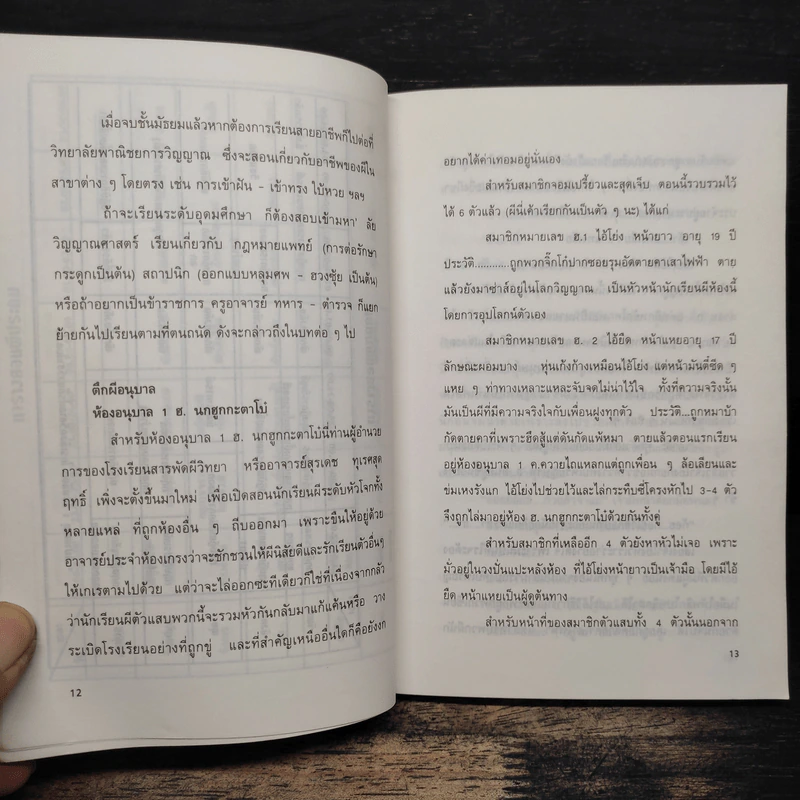 เมื่อจบชั้นมัธยมแล้วหากต้องการเรียนสายอาชีพก็ไปต่อที่
วิทยาลัยพาณิชยการวิญญาณ ซึ่งจะสอนเกี่ยวกับอาชีพของผีใน
สาขาต่าง ๆ โดยตรง เช่น การเข้าฝัน – เข้าทรง ใบ้หวย ฯลฯ
ถ้าจะเรียนระดับอุดมศึกษา ก็ต้องสอบเข้ามหา' ลัย
วิญญาณศาสตร์ เรียนเกี่ยวกับ กฎหมายแพทย์ (การต่อรักษา
กระดูกเป็นต้น) สถาปนิก (ออกแบบหลุมศพ – ฮวงซุ้ย เป็นต้น)
หรือถ้าอยากเป็นข้าราชการ ครูอาจารย์ ทหาร – ตำรวจ ก็แยก
ย้ายกันไปเรียนตามที่ตนถนัด ดังจะกล่าวถึงในบทต่อ ๆ ไป
ตึกผีอนุบาล
ห้องอนุบาล 1 ฮ. นกฮูกกะตาโบ๋
สำหรับห้องอนุบาล 1 ฮ. นกฮูกกะตาโบ๋นี้ท่านผู้อำนวย
การของโรงเรียนสารพัดผีวิทยา หรืออาจารย์สุรเดช ทุเรศสุด
ฤทธิ์ เพิ่งจะตั้งขึ้นมาใหม่ เพื่อเปิดสอนนักเรียนผีระดับหัวโจกทั้ง
หลายแหล่ ที่ถูกห้องอื่น ๆ ถีบออกมา เพราะขืนให้อยู่ด้วย
อาจารย์ประจำห้องเกรงว่าจะชักชวนให้ผีนิสัยดีและรักเรียนตัวอื่นๆ
ให้เกเรตามไปด้วย แต่ว่าจะไล่ออกซะทีเดียวก็ใช่ที่เนื่องจากกลัว
ว่านักเรียนผีตัวแสบพวกนี้จะรวมหัวกันกลับมาแก้แค้นหรือ วาง
ระเบิดโรงเรียนอย่างที่ถูกขู่ และที่สำคัญเหนืออื่นใดก็คือยังงก
12
อยากได้ค่าเทอมอยู่นั่นเอง
สำหรับสมาชิกจอมเปรี้ยวและสุดเจ็บ ตอนนี้รวบรวมไว้
ได้ 6 ตัวแล้ว (ผีนี่เค้าเรียกกันเป็นตัว ๆ นะ) ได้แก่
สมาชิกหมายเลข ฮ.1 ไอ้โย่ง หน้ายาว อายุ 19 ปี
ประวัติ............ถูกพวกจิ๊กโก๋ปากซอยรุมอัดตายคาเสาไฟฟ้า ตาย
แล้วยังมาซ่าส์อยู่ในโลกวิญญาณ เป็นหัวหน้านักเรียนผีห้องนี้
โดยการอุปโลกน์ตัวเอง
สมาชิกหมายเลข ฮ. 2 ไอ้ยืด หน้าแหยอายุ 17 ปี
ลักษณะผอมบาง หุ่นเก้งก้างเหมือนไอ้โย่ง แต่หน้ามันดี่ซีด ๆ
แหย ๆ ท่าทางเหลาะแหละจับจดไม่น่าไว้ใจ ทั้งที่ความจริงนั้น
มันเป็นผีที่มีความจริงใจกับเพื่อนฝูงทุกตัว ประวัติ...ถูกหมาบ้า
กัดตายคาที่เพราะฮึดสู้แต่ดันกัดแพ้หมา ตายแล้วตอนแรกเรียน
อยู่ห้องอนุบาล 1 ค.ควายไถแหลกแต่ถูกเพื่อน ๆ ล้อเลียนและ
ข่มเหงรังแก ไอ้โย่งไปช่วยไว้และไล่กระทืบซี่โครงหักไป 3-4 ตัว
จึงถูกไล่มาอยู่ห้อง ฮ. นกฮูกกะตาโบ๋ด้วยกันทั้งคู่
สำหรับสมาชิกที่เหลืออีก 4 ตัวยังหาหัวไม่เจอ เพราะ
มั่วอยู่ในวงปั่นแปะหลังห้อง ที่ไอ้โย่งหน้ายาวเป็นเจ้ามือ โดยมีไอ้
ยืด หน้าแหยเป็นผู้ดูต้นทาง
สำหรับหน้าที่ของสมาชิกตัวแสบทั้ง 4 ตัวนั้นนอกจาก
13